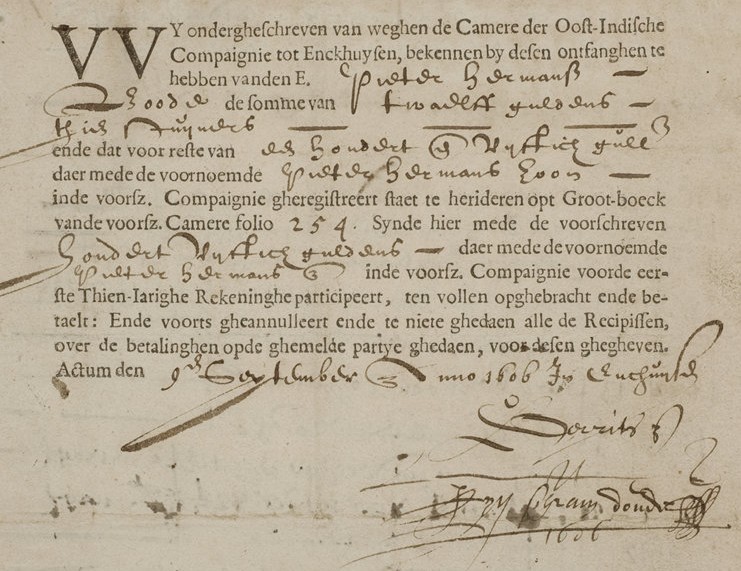 VVY ondergheschreven van weghen de Camere der Oost-Indische
Compaignie tot Enckhuysen, bekennen by desen ontfanghen te
hebben vanden E. Pieter Hermansz
de somme van twaelff guldens
thien stuyvers
ende dat voor reste van een hondert vyftich
daer mede de voornoemde Pieter Hermans zoon
inde voorsz. Compaignie gheregistreert staet te herideren opt Groot-boeck
vande voorsz. Camere folio 254. Synde hier mede de voorschreven
hondert vyftich guldens daer mede de voornoemde
Pieter Hermans inde voorsz. Compaignie voorde eer-
ste Thien-Iarighe Rekeninghe participeert, ten vollen opghebracht ende be-
taelt: Ende voorts gheannulleert ende te niete ghedaen alle de Recipissen,
over de betalinghen opde ghemelde partye ghedaen, voor desen ghegheven.
Actum den 9en September Anno 1606 In
1606